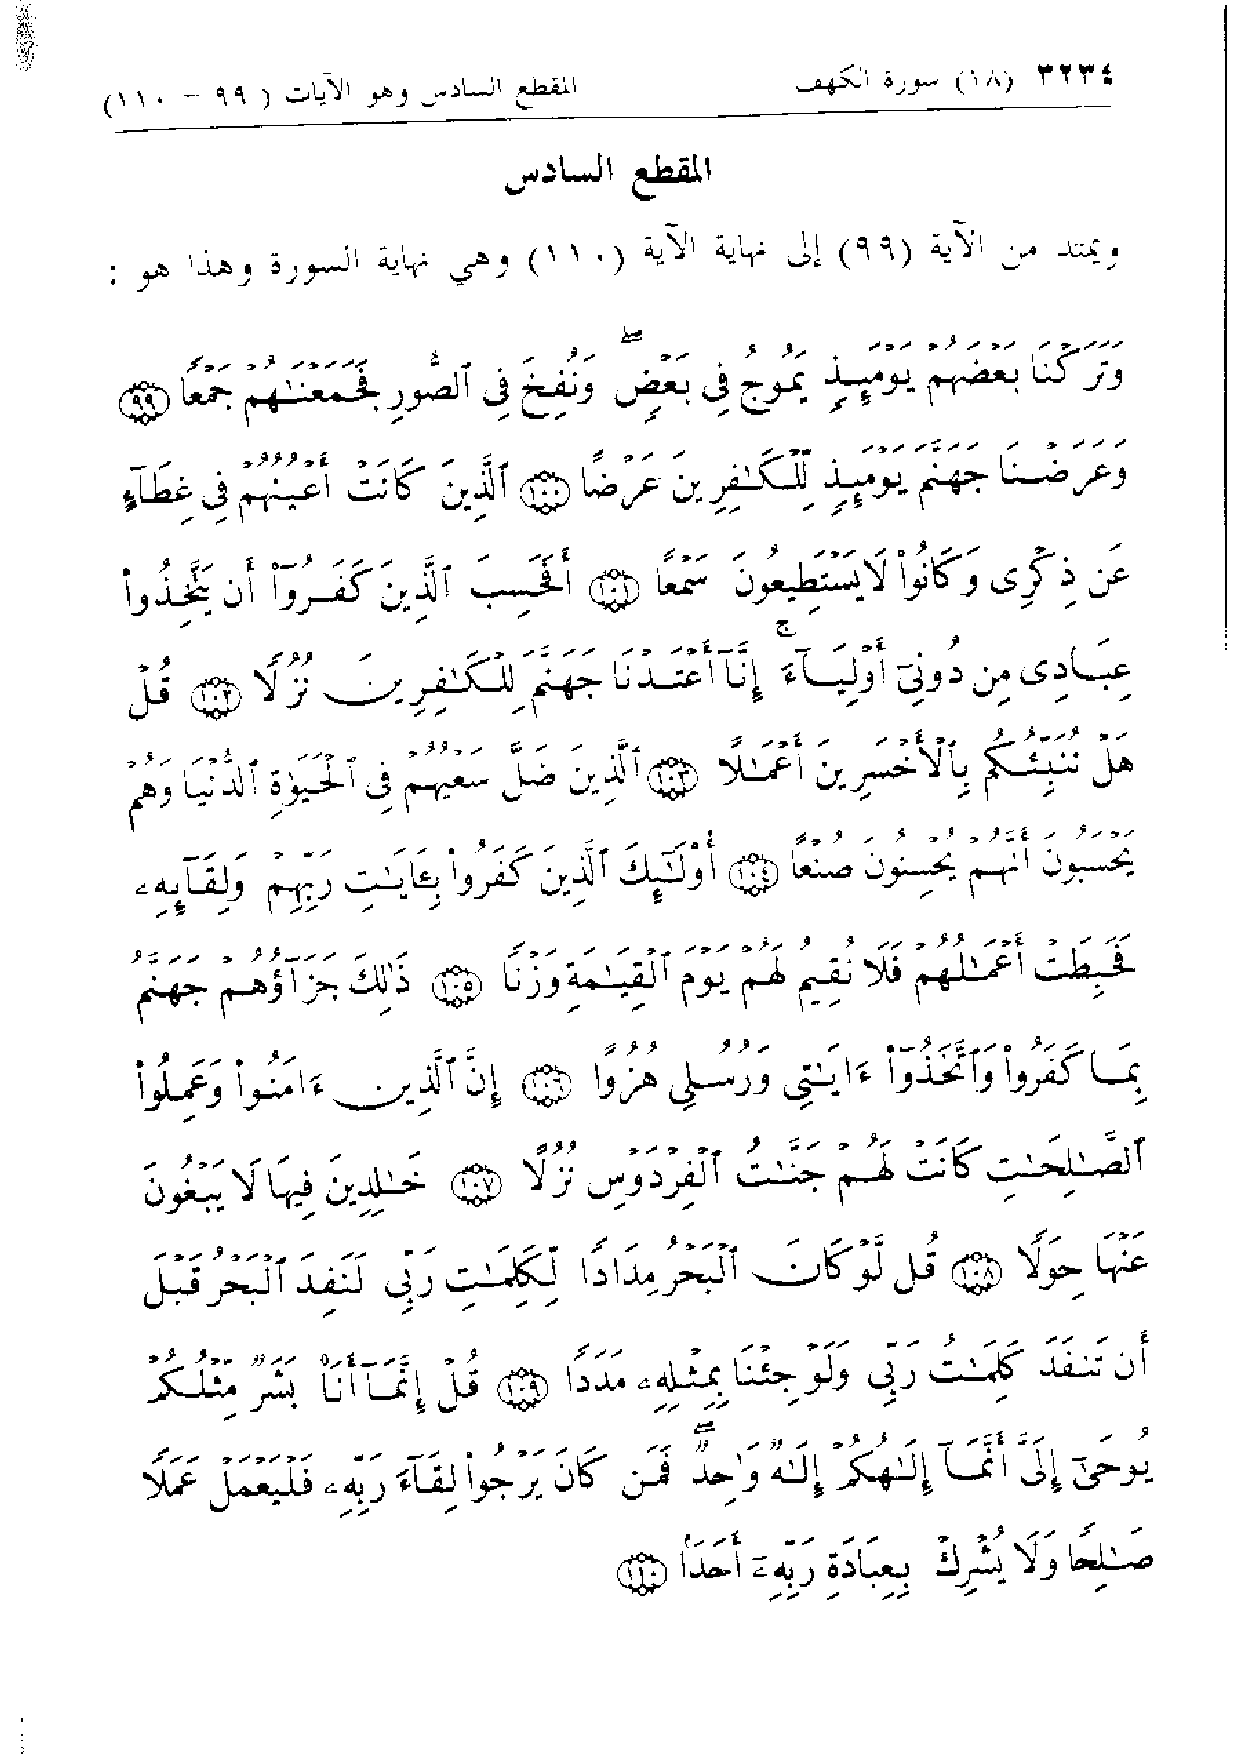 ٣٢٣٤ (١٨) سورة الكهف المقطع السادس وهو الآيات ( ٩٩ – ١١٠)
المقطع السادس
ويمتد من الآية (٩٩) إلى نهاية الآية (١١٠) وهي نهاية السورة وهذا هو :
وَتَرَكْنَا بَعْضَهُمْ يَوْمَئِذٍ يَمُوجُ فِي بَعْضٍ ۖ وَنُفِخَ فِي ٱلصُّورِ فَجَمَعْنَٰهُمْ جَمْعًا ﴿٩٩﴾
وَعَرَضْنَا جَهَنَّمَ يَوْمَئِذٍ لِّلْكَٰفِرِينَ عَرْضًا ﴿١٠٠﴾ ٱلَّذِينَ كَانَتْ أَعْيُنُهُمْ فِي غِطَآءٍ
عَن ذِكْرِى وَكَانُوا۟ لَا يَسْتَطِيعُونَ سَمْعًا ﴿١٠١﴾ أَفَحَسِبَ ٱلَّذِينَ كَفَرُوٓا۟ أَن يَتَّخِذُوا۟
عِبَادِى مِن دُونِىٓ أَوْلِيَآءَ ۚ إِنَّآ أَعْتَدْنَا جَهَنَّمَ لِلْكَٰفِرِينَ نُزُلًا ﴿١٠٢﴾ قُلْ
هَلْ نُنَبِّئُكُم بِٱلْأَخْسَرِينَ أَعْمَٰلًا ﴿١٠٣﴾ ٱلَّذِينَ ضَلَّ سَعْيُهُمْ فِي ٱلْحَيَوٰةِ ٱلدُّنْيَا وَهُمْ
يَحْسَبُونَ أَنَّهُمْ يُحْسِنُونَ صُنْعًا ﴿١٠٤﴾ أُو۟لَٰٓئِكَ ٱلَّذِينَ كَفَرُوا۟ بِـَٔايَٰتِ رَبِّهِمْ وَلِقَآئِهِۦ
فَحَبِطَتْ أَعْمَٰلُهُمْ فَلَا نُقِيمُ لَهُمْ يَوْمَ ٱلْقِيَٰمَةِ وَزْنًا ﴿١٠٥﴾ ذَٰلِكَ جَزَآؤُهُمْ جَهَنَّمُ
بِمَا كَفَرُوا۟ وَٱتَّخَذُوٓا۟ ءَايَٰتِى وَرُسُلِى هُزُوًا ﴿١٠٦﴾ إِنَّ ٱلَّذِينَ ءَامَنُوا۟ وَعَمِلُوا۟
ٱلصَّٰلِحَٰتِ كَانَتْ لَهُمْ جَنَّٰتُ ٱلْفِرْدَوْسِ نُزُلًا ﴿١٠٧﴾ خَٰلِدِينَ فِيهَا لَا يَبْغُونَ
عَنْهَا حِوَلًا ﴿١٠٨﴾ قُل لَّوْ كَانَ ٱلْبَحْرُ مِدَادًا لِّكَلِمَٰتِ رَبِّى لَنَفِدَ ٱلْبَحْرُ قَبْلَ
أَن تَنفَدَ كَلِمَٰتُ رَبِّى وَلَوْ جِئْنَا بِمِثْلِهِۦ مَدَدًا ﴿١٠٩﴾ قُلْ إِنَّمَآ أَنَا۠ بَشَرٌ مِّثْلُكُمْ
يُوحَىٰٓ إِلَىَّ أَنَّمَآ إِلَٰهُكُمْ إِلَٰهٌ وَٰحِدٌ ۖ فَمَن كَانَ يَرْجُوا۟ لِقَآءَ رَبِّهِۦ فَلْيَعْمَلْ عَمَلًا
صَٰلِحًا وَلَا يُشْرِكْ بِعِبَادَةِ رَبِّهِۦٓ أَحَدًۢا ﴿١١٠﴾